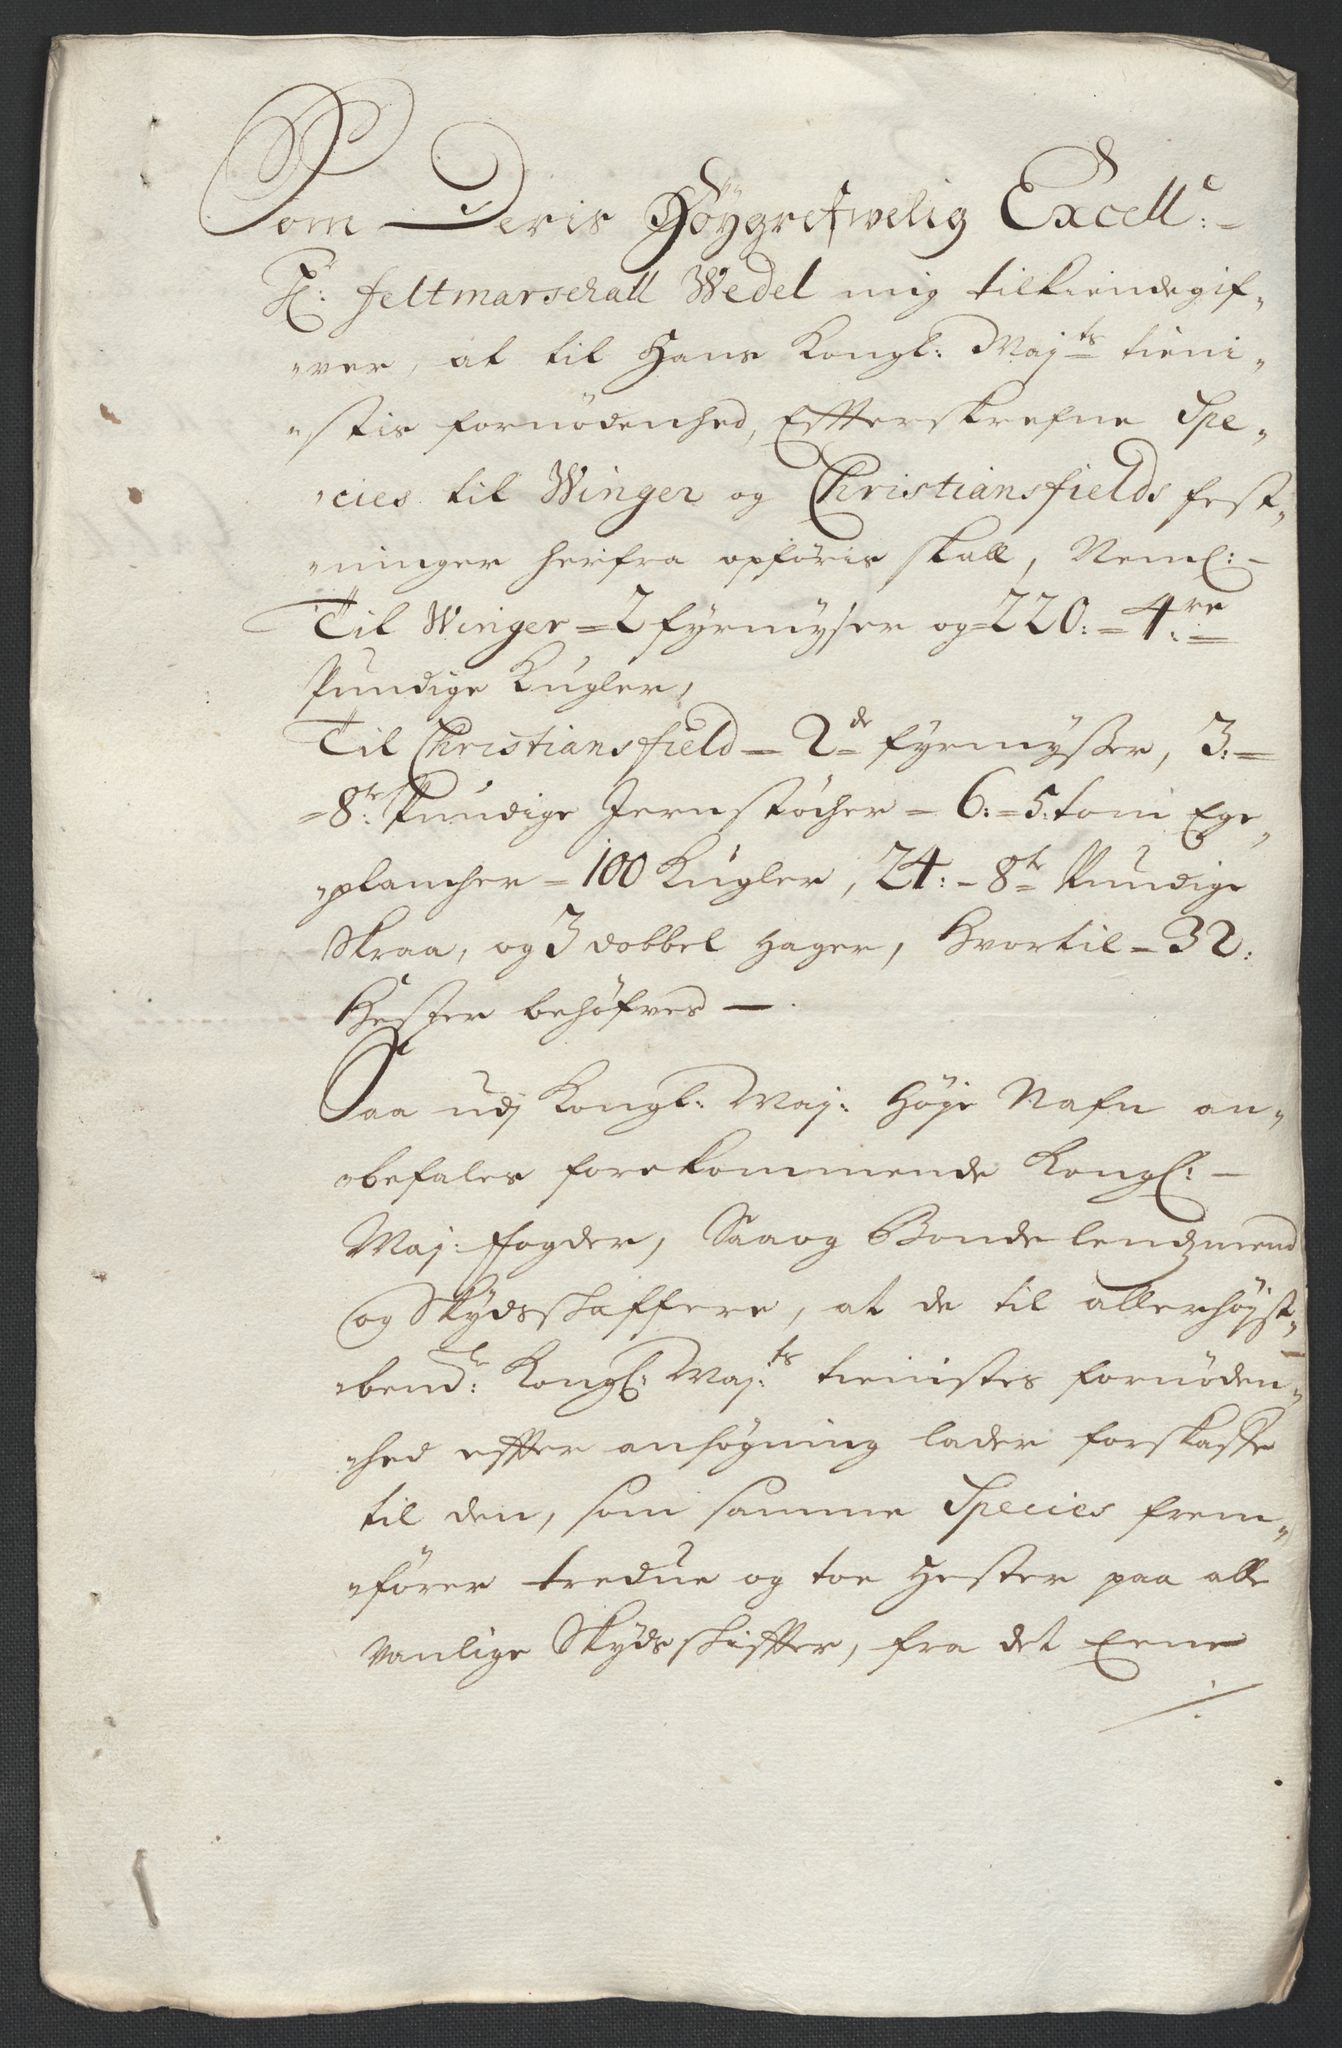 Som Deris Høygrefwelig Excell:
H: feltmarschall Wedel mig tilkiendegif-
-ver, at til Hans Kongl: Maj:ts tieni-
-stis fornødenhed, Effterskrefne Spe-
-cies til Winger og Christiansfields fest-
-ninger herfra opføris skall, Neml:
Til Winger = 2 fyrmyser og = 220: = 4:re
Pundige Kugler,
Til Christiansfield = 2de fyrmysser, 3: =
= 8te Pundige Jernstøcher = 6: = 5: tom Ege-
-plancher = 100 Kugler, 24: - 8te Pundige
Skraa, og 3 dobbel Hager, hvortil = 32:
Hester behøfves —.
Saa udj Kongl: Maj: Høje Nafn an-
-befales forekommende Kongl:
Maj: ffogder, Saa og Bonde lendzmend
og Skydsskaffere, at de til allerhøjst-
-bend:te Kongl: Maj:ts tienistes fornøden-
-hed effter ansøgning lader forskaffe
til den, som samme Species frem-
-fører tredue og toe Hester paa alle
vanlige Skydsskiffter, fra det Eene
./.